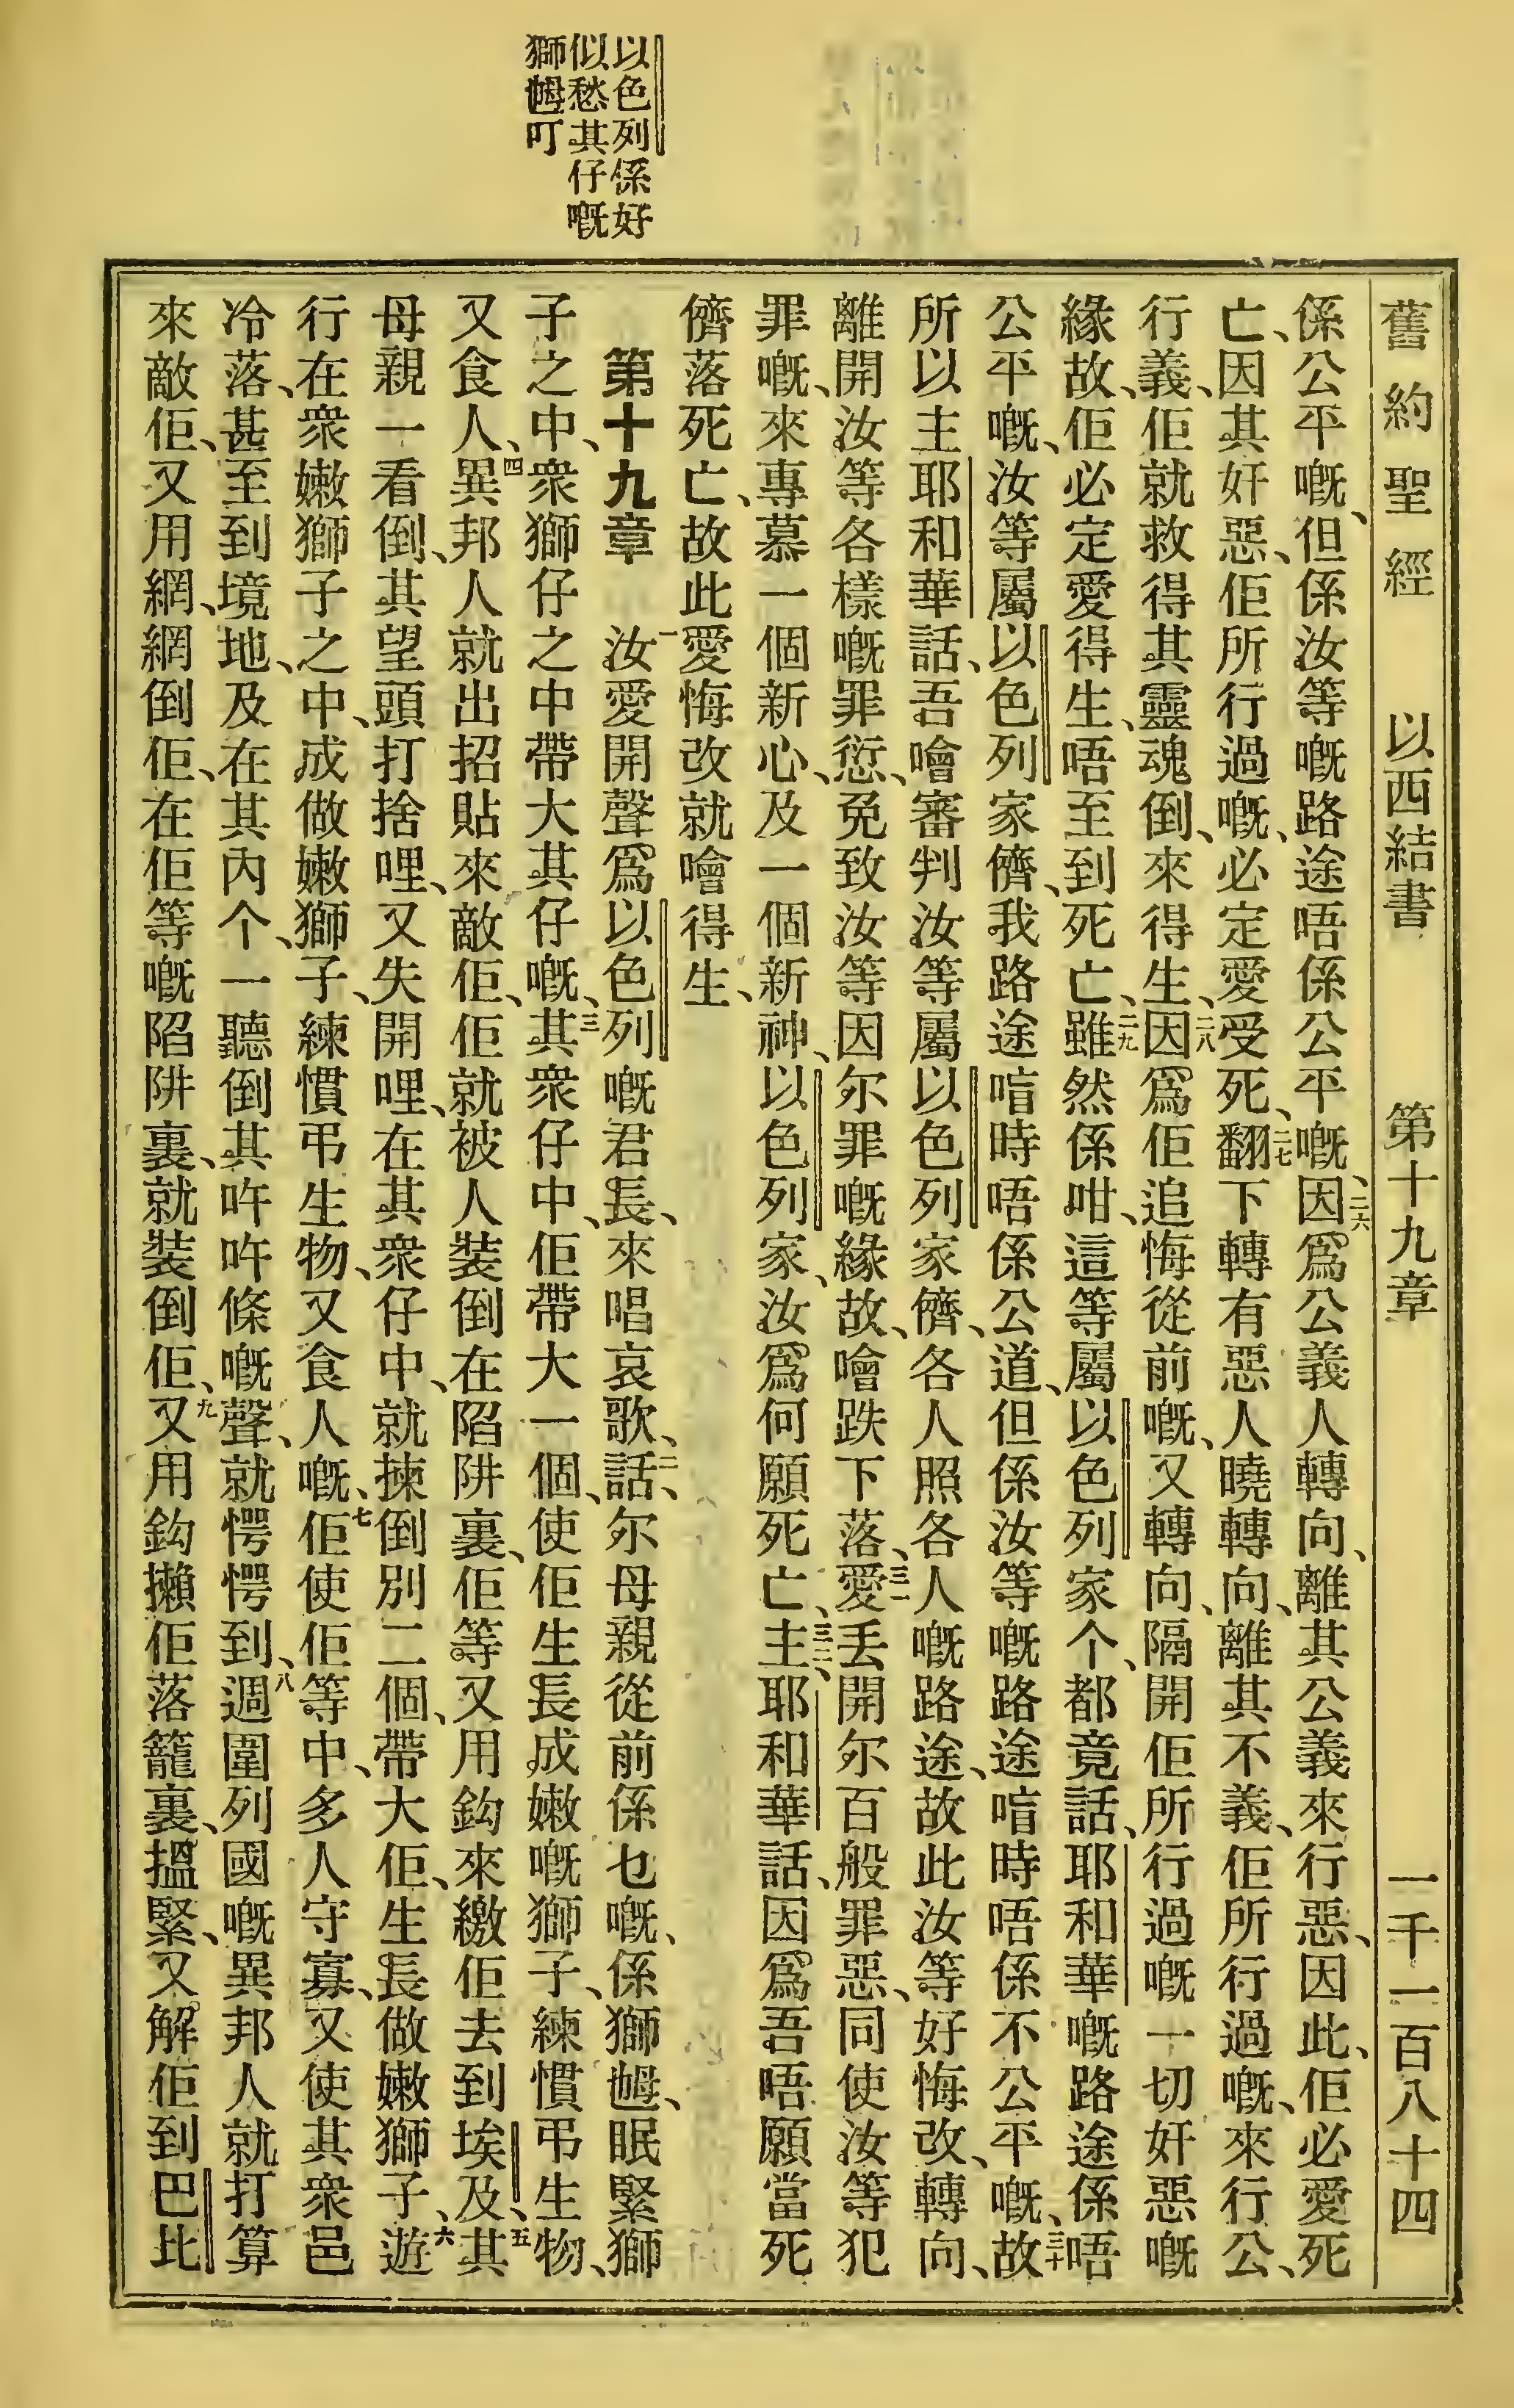 舊約聖經 以西結書 第十九章 一千一百八十四
係公平嘅、但係汝等嘅路途唔係公平嘅、二六因爲公義人轉向、離其公義來行惡、因此、佢必愛死
亡、因其奸惡、佢所行過嘅、必定愛受死、二七翻下轉有惡人曉轉向、離其不義、佢所行過嘅、來行公、
行義、佢就救得其靈魂倒、來得生、二八因爲佢追悔從前嘅、又轉向、隔開佢所行過嘅一切奸惡嘅
緣故、佢必定愛得生、唔至到死亡、二九雖然係咁、這等屬以色列家个、都竟話、耶和華嘅路途係唔
公平嘅、汝等屬以色列家儕、我路途喑時唔係公道、但係汝等嘅路途喑時唔係不公平嘅、三十故
所以主耶和華話、吾噲審判汝等屬以色列家儕、各人照各人嘅路途、故此汝等好悔改、轉向、
離開汝等各樣嘅罪愆、免致汝等因尔罪嘅緣故、噲跌下落、三一愛丢開尔百般罪惡、同使汝等犯
罪嘅、來專慕一個新心、及一個新神、以色列家、汝爲何願死亡、三二主耶和華話、因爲吾唔願當死
儕落死亡、故此愛悔改就噲得生、
第十九章 一汝愛開聲爲以色列嘅君長、來唱哀歌、二話、尔母親從前係乜嘅、係獅乸、眠緊獅
子之中、衆獅仔之中帶大其仔嘅、三其衆仔中、佢帶大一個、使佢生長成嫩嘅獅子、練慣弔生物、
又食人、四異邦人就出招貼來敵佢、佢就被人裝倒在陷阱裏、佢等又用鈎來繳佢去到埃及、五其
母親一看倒、其望頭打捨哩、又失開哩、在其衆仔中、就揀倒別二個、帶大佢、生長做嫩獅子、六遊
行在衆嫩獅子之中、成做嫩獅子、練慣弔生物、又食人嘅、七佢使佢等中、多人守寡、又使其衆邑
冷落、甚至到境地、及在其內个、一聽倒其吽吽條嘅聲、就愕愕到、八週圍列國嘅異邦人就打算
來敵佢、又用網、網倒佢、在佢等嘅陷阱裏、就裝倒佢、九又用鈎攋佢落籠裏、搵緊、又解佢到巴比
以色列係好
似愁其仔嘅
獅乸叮